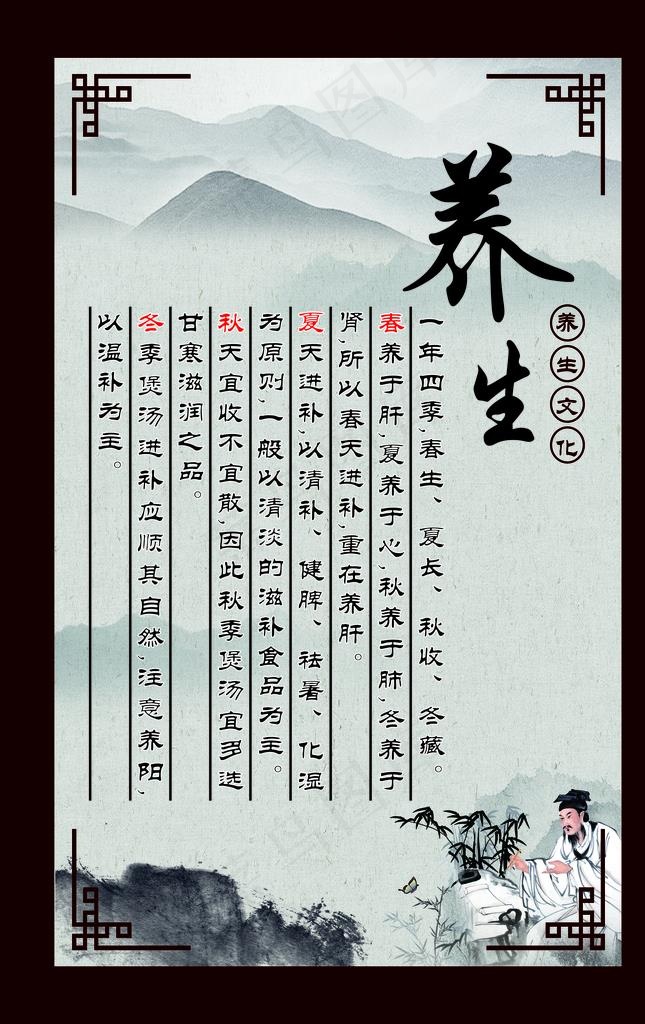 养生
养生文化
一年四季,春生、夏长、秋收、冬藏。
春养于肝,夏养于心,秋养于肺,冬养于
肾,所以春天进补,重在养肝。
夏天进补,以清补、健脾、祛暑、化湿
为原则,一般以清淡的滋补食品为主。
秋天宜收不宜散,因此秋季煲汤宜多选
甘寒滋润之品。
冬季煲汤进补应顺其自然,注意养阳,
以温补为主。